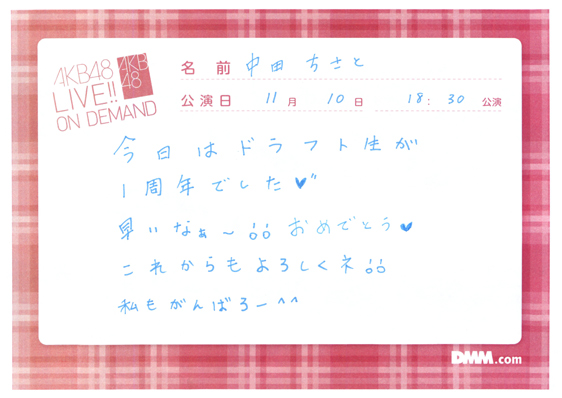 AKB48
LIVE!!
ON DEMAND
AKB
48
名 前 中田 ちさと
公演日 11月 10日 18:30 公演
今日はドラフト生が
1周年でした♥〃
早いなぁ〜 おめでとう♥
これからもよろしくネ
私もがんばろー^^
DMM.com